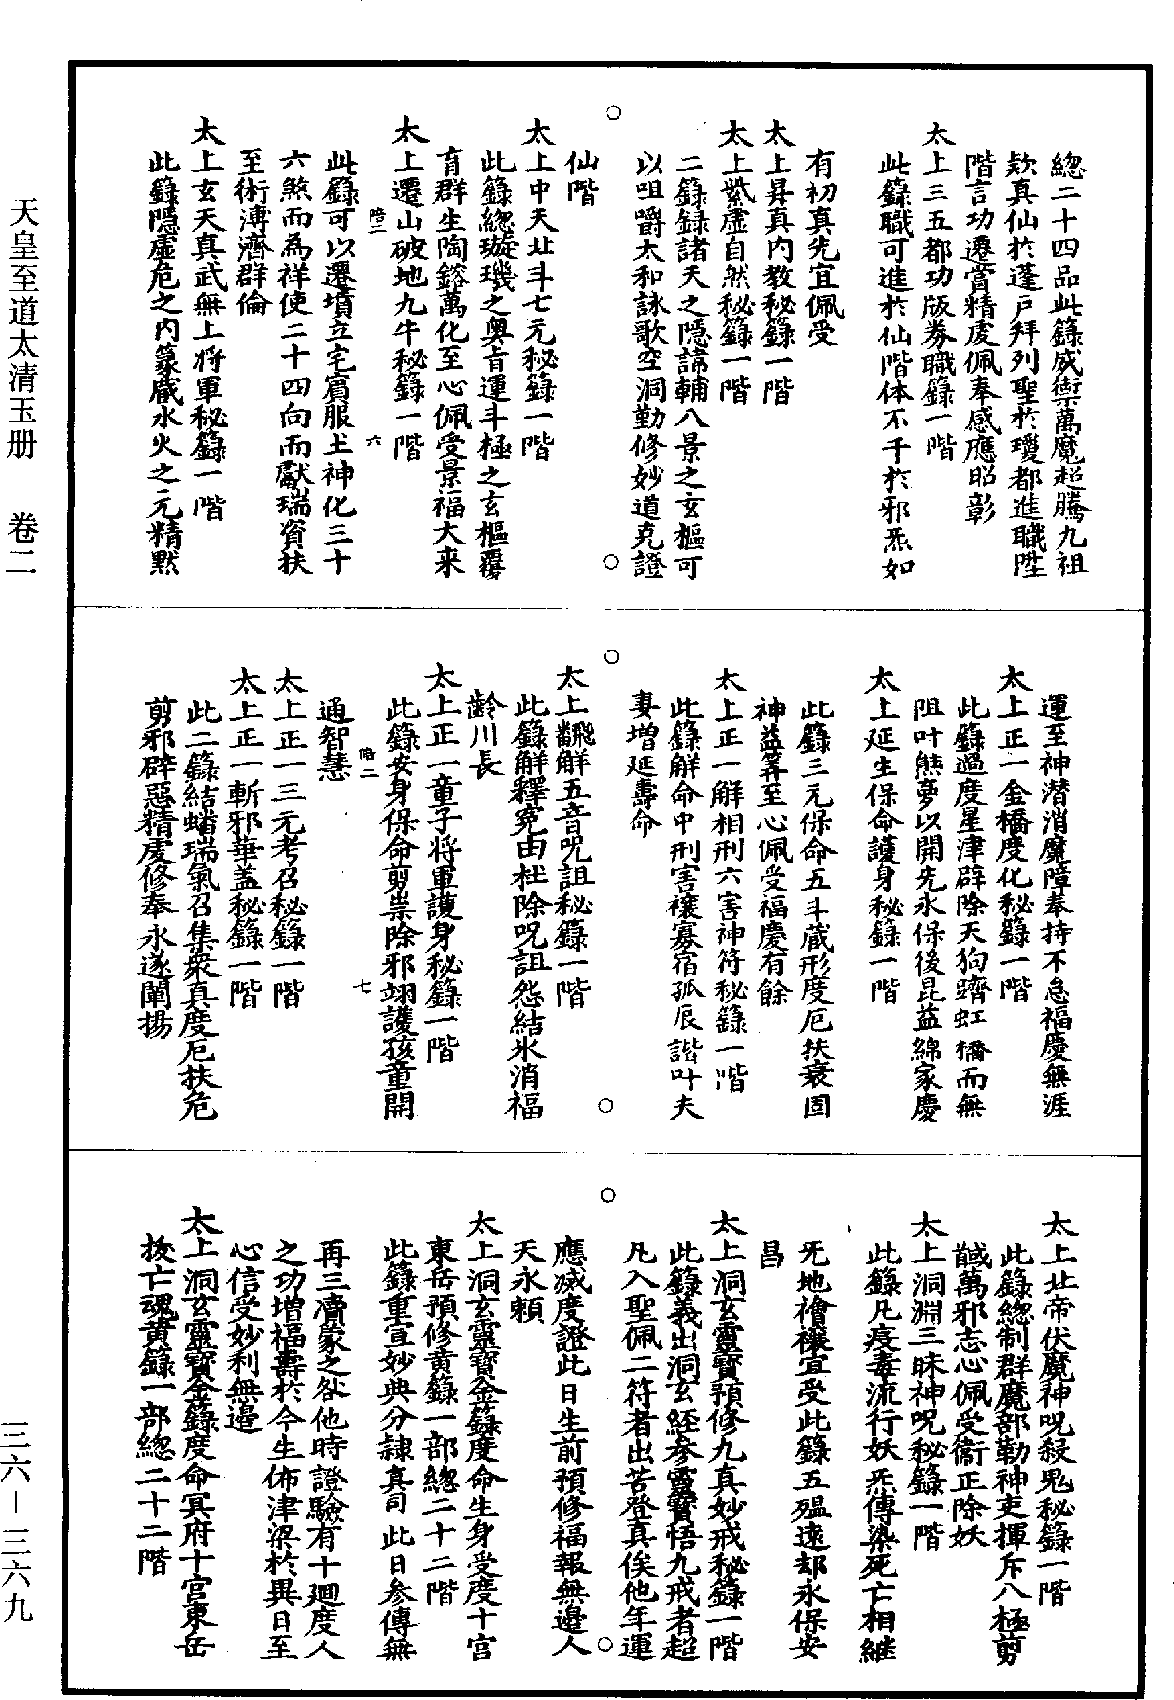 總二十四品此籙威禦萬魔超騰九祖
欵真仙於蓬戶拜列聖於瓊都進職陞
階言功遷賞精虔佩奉感應昭彰
太上三五都功版券職籙一階
此籙職可進於仙階体不干於邪炁如
有初真先宜佩受
太上昇真內教秘籙一階
太上紫虛自然秘籙一階
二籙錄諸天之隱諱輔八景之玄樞可
以咀嚼太和詠歌空洞勤修妙道克證
仙階
太上中天北斗七元秘籙一階
此籙總璇璣之奧旨運斗極之玄樞覆
育群生陶鎔萬化至心佩受景福大来
太上遷山破地九牛秘籙一階
階二 六
此籙可以遷墳立宅賓服土神化三十
六煞而為祥使二十四向而獻瑞資扶
至術溥濟群倫
太上玄天真武無上将軍秘籙一階
此籙隱虛危之內篆蔵水火之元精黙
運至神潜消魔障奉持不怠福慶無涯
太上正一金橋度化秘籙一階
此籙過度星津辟除天狗躋虹橋而無
阻叶熊夢以開先永保後昆益綿家慶
太上延生保命護身秘籙一階
此籙三元保命五斗蔵形度厄扶衰固
神益筭至心佩受福慶有餘
太上正一解相刑六害神符秘籙一階
此籙解命中刑害禳寡宿孤辰諧叶夫
妻增延壽命
太上飜解五音呪詛秘籙一階
此籙解釋冤由杜除呪詛怨結氷消福
齡川長
太上正一童子将軍護身秘籙一階
此籙安身保命剪祟除邪翊護孩童開
階二 七
通智慧
太上正一三元考召秘籙一階
太上正一斬邪華盖秘籙一階
此二籙結蟠瑞氣召集衆真度厄扶危
剪邪辟惡精虔修奉永遂闡揚
太上北帝伏魔神呪殺鬼秘籙一階
此籙總制群魔部勒神吏揮斥八極剪
馘萬邪志心佩受衞正除妖
太上洞淵三昧神呪秘籙一階
此籙凡疫毒流行妖炁傳染死亡相継
旡地禬禳宜受此籙五殟遠却永保安
昌
太上洞玄靈寶預修九真妙戒秘籙一階
此籙義出洞玄經參靈寶悟九戒者超
凡入聖佩二符者出苦登真俟他年運
應滅度證此日生前預修福報無邉人
天永頼
太上洞玄靈寶金籙度命生身受度十宮
東岳預修黄籙一部總二十二階
此籙重宣妙典分隷真司此日參傳無
再三瀆蒙之咎他時證驗有十廻度人
之功增福壽於今生佈津梁於異日至
心信受妙利無邉
太上洞玄靈寶金籙度命冥府十宮東岳
拔亡魂黄籙一部總二十二階
天皇至道太清玉册　卷二
三六－三六九